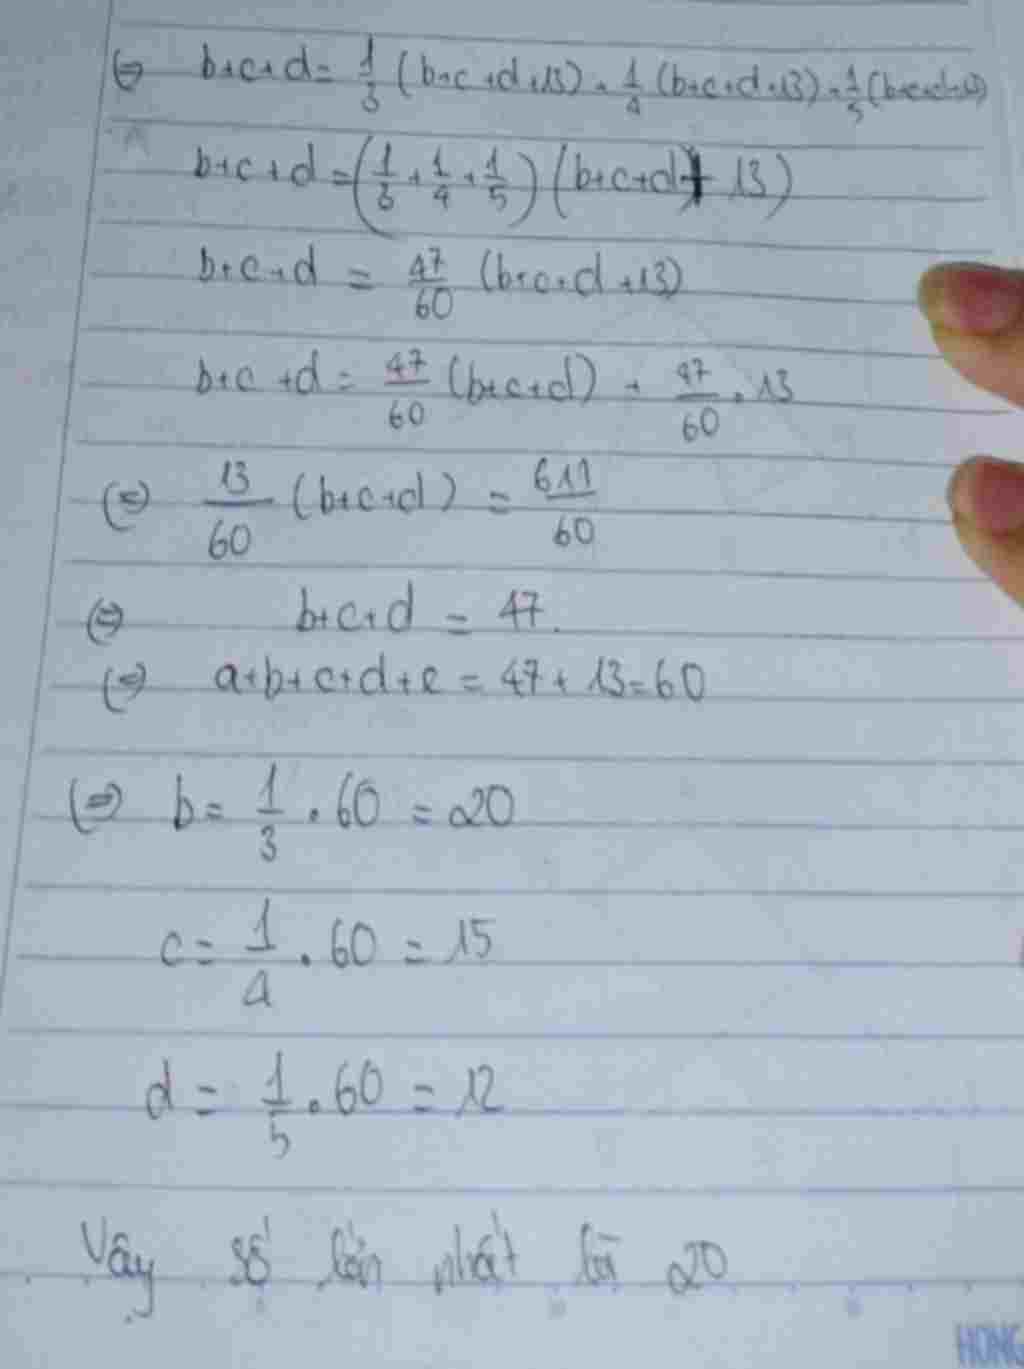 (=) b+c+d = 1/3 (b+c+d+13) + 1/4 (b+c+d+13) + 1/5 (b+c+d+13)
b+c+d = (1/3 + 1/4 + 1/5) (b+c+d + 13)
b+c+d = 47/60 (b+c+d+13)
b+c+d = 47/60 (b+c+d) + 47/60 . 13
(=) 13/60 (b+c+d) = 611/60
(=) b+c+d = 47.
(=) a+b+c+d+e = 47+13=60
(=) b = 1/3 . 60 = 20
c = 1/4 . 60 = 15
d = 1/5 . 60 = 12
Vậy số lớn nhất là 20
HONG